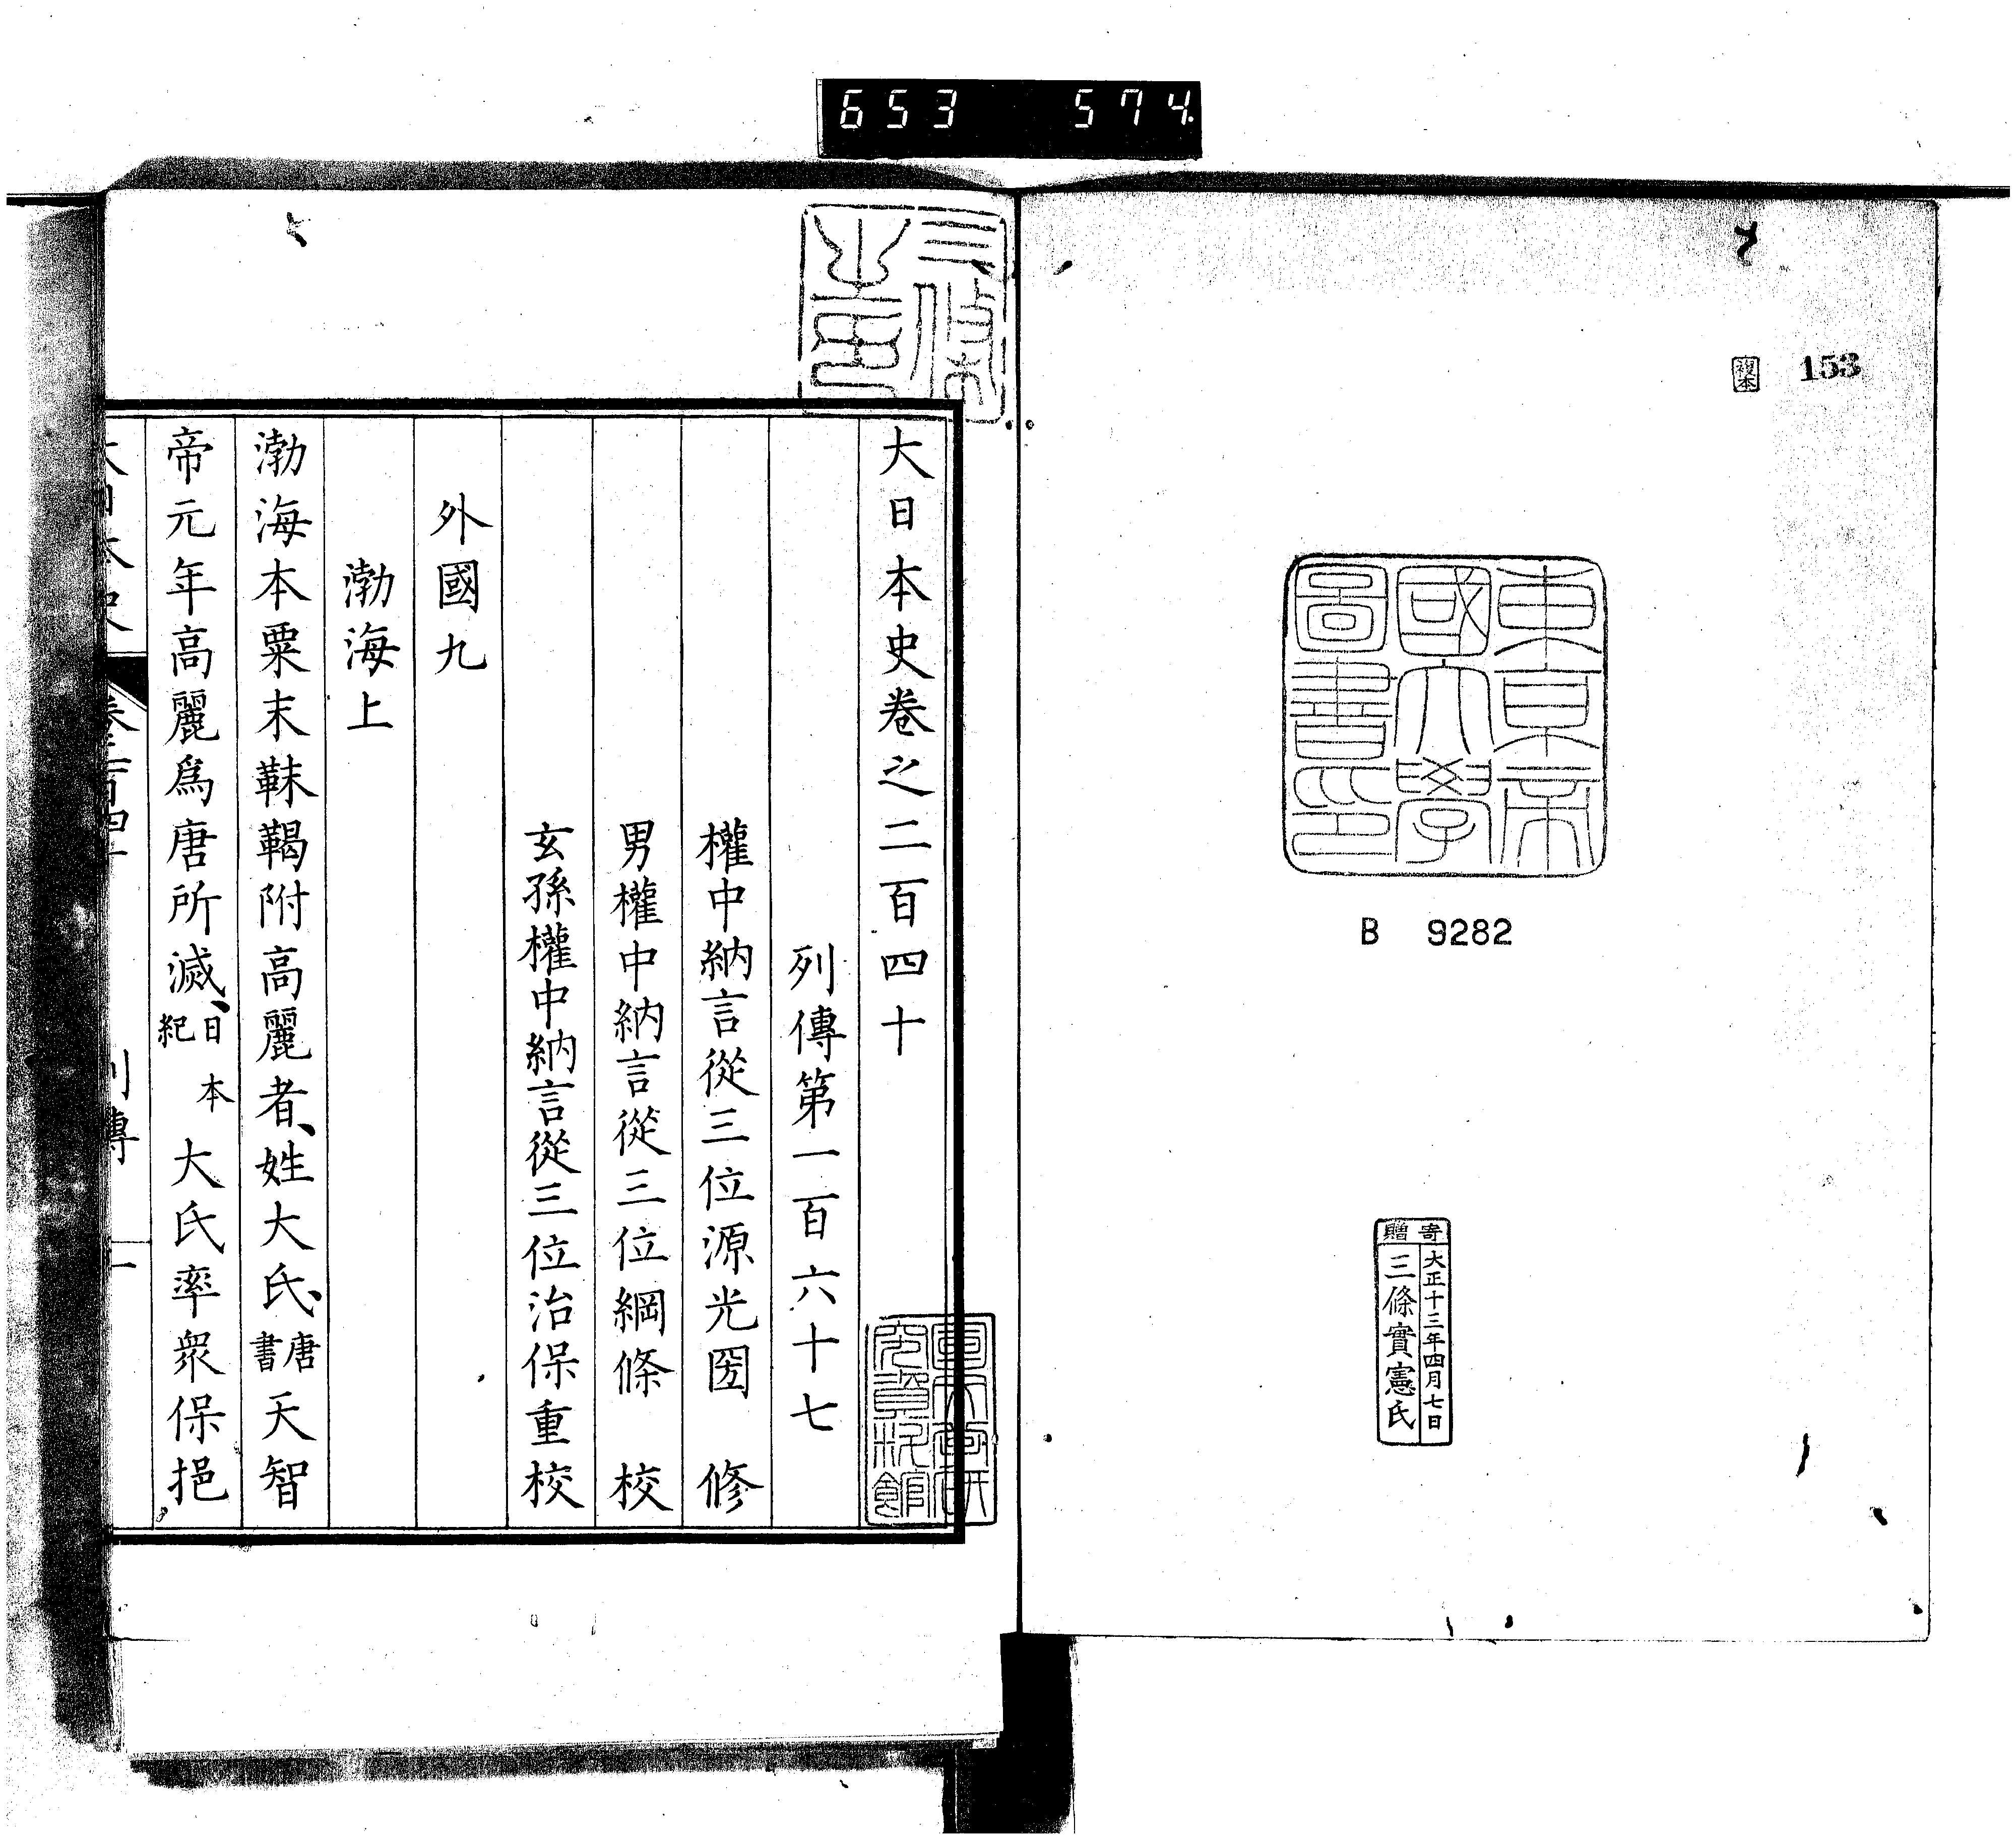 653 574
153
複本
東京帝
國大學
圖書印
B 9282
寄贈
大正十三年四月七日
三條實憲氏
三條
大日本史卷之二百四十
列傳第一百六十七
權中納言從三位源光圀 修
男權中納言從三位綱條 校
玄孫權中納言從三位治保重校
外國九
渤海上
渤海本粟末靺鞨附高麗者、姓大氏、唐書天智
帝元年高麗爲唐所滅、日本紀大氏率衆保挹